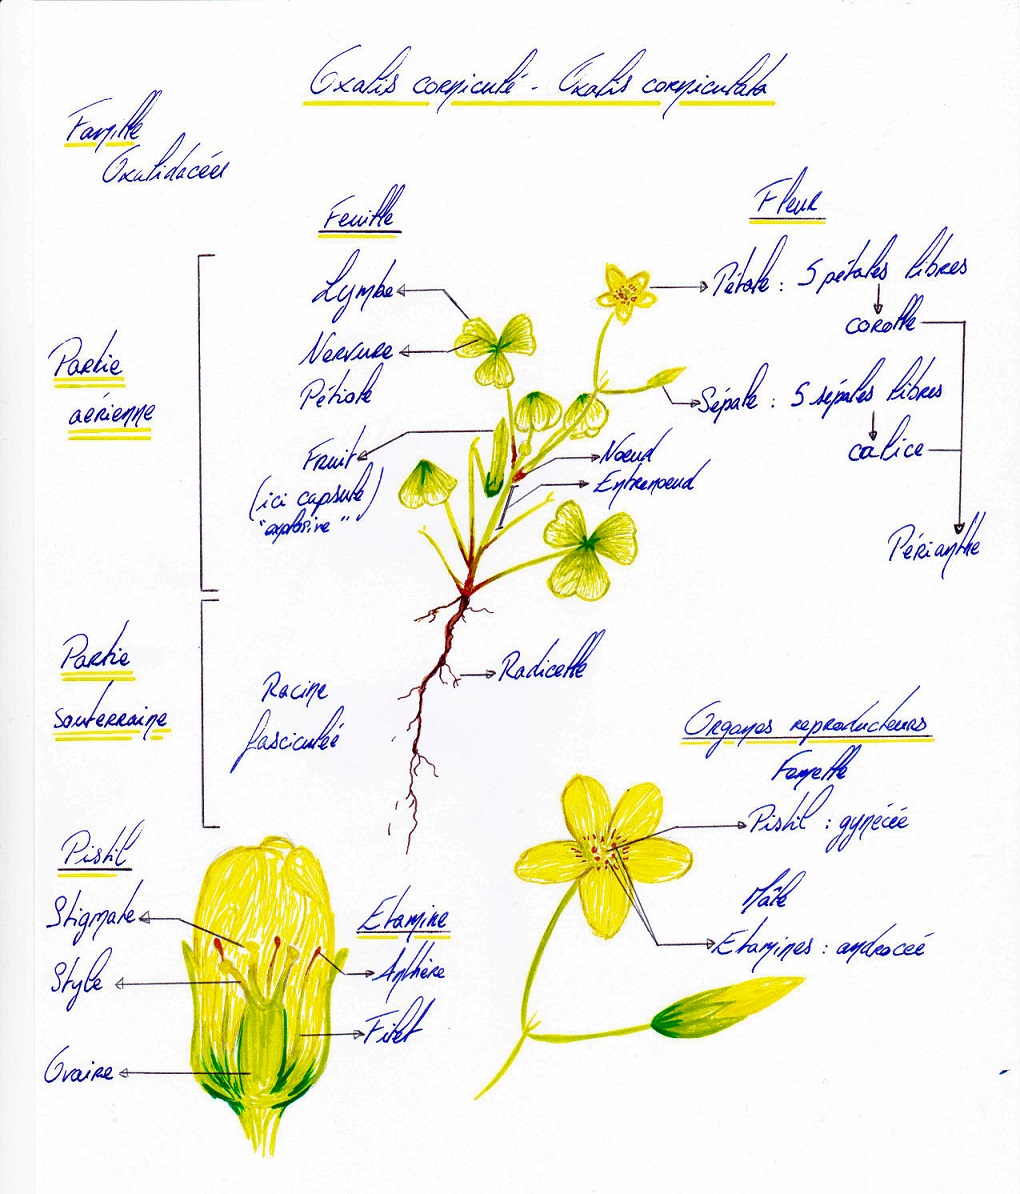 Oxalis corniculé - Oxalis corniculata
Famille
Oxalidacées
Feuille
Lymbe
Nervure
Pétiole
Fruit
(ici capsule)
"explosive"
Partie
aérienne
Fleur
Pétale : 5 pétales libres
corolle
Sépale : 5 sépales libres
calice
Périanthe
Noeud
Entrenoeud
Partie
souterraine
Racine
fasciculée
Radicelle
Organes reproducteurs
Femelle
Pistil : gynécée
Mâle
Etamines : androcée
Pistil
Stigmate
Style
Ovaire
Etamine
Anthère
Filet